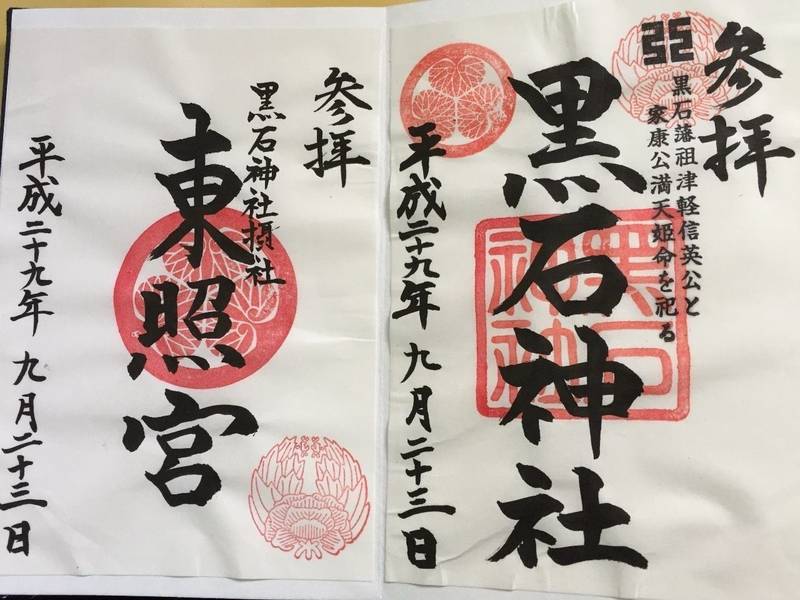 参拝
黒石藩祖津軽信英公と
家康公満天姫命を祀る
黒石神社
黒石
神社
平成二十九年九月二十三日
参拝
黒石神社摂社
東照宮
平成二十九年九月二十三日